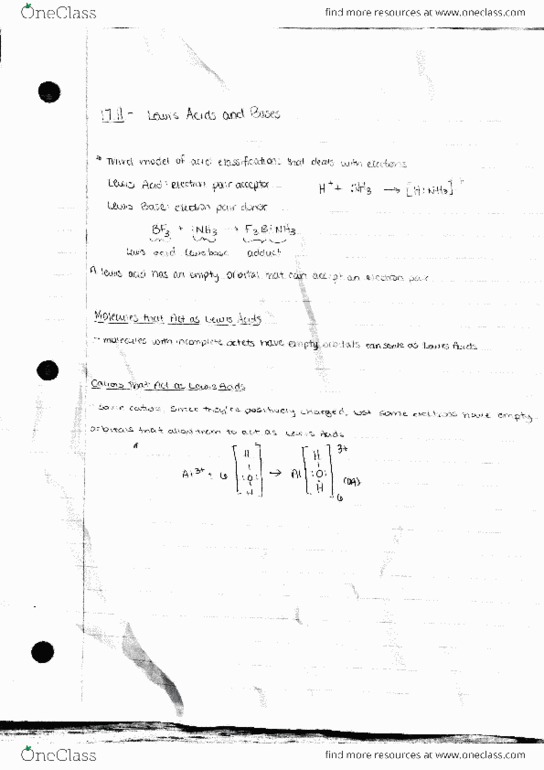 OneClass
find more resources at www.oneclass.com
17.11 - Lewis Acids and Bases
* Third model of acid classification, that deals with electrons
Lewis Acid: electron pair acceptor
H⁺ + :NH₃ → [H:NH₃]⁺
Lewis Base: electron pair donor
BF₃ + :NH₃ → F₃B:NH₃
lewis acid lewis base adduct
A lewis acid has an empty orbital that can accept an electron pair
Molecules that Act as Lewis Acids
- molecules with incomplete octets have empty orbitals can serve as Lewis Acids
Cations that Act as Lewis Acids
- Some cations, since they're positively charged, lost some electrons have empty
orbitals that allow them to act as Lewis Acids
Al³⁺ + 6 [H :O: H] → Al [H :O: H]₆ ³⁺ (aq)
OneClass
find more resources at www.oneclass.com